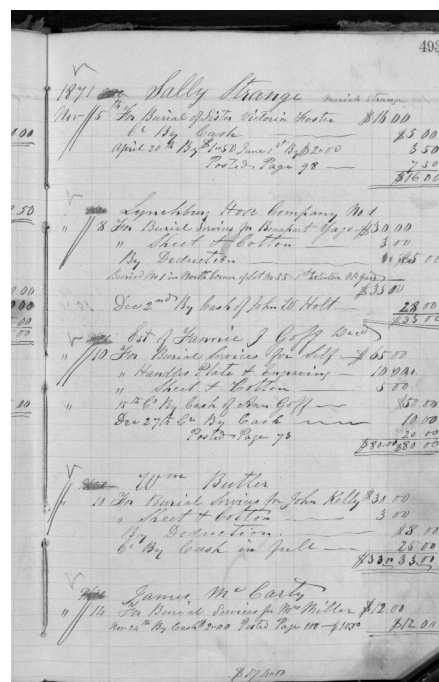 493
1871 Sally Strange
Nov 5th For Burial of Sister Victoria Foster $16 00
Cr By Cash $5 00
April 20th By $1.50 June 1st By $2.00 3 50
Posted Page 98 7 50
$16 00
Lynchburg Hose Company No 1
" 8 For Burial Services for Page $30 00
" Sheet & Cotton 3 00
By Deduction 5 00
Buried No 1 in North corner of lot No 55
$33 00
Dec 2nd By Cash of John W Holt 28 00
$33 00
Est of Fannie J Goff Decd
" 10 For Burial Services for Self $65 00
" Handles Plate & Engraving 10 00
" Sheet & Cotton 5 00
" 15th Cr By Cash of Ann Goff $50 00
Dec 27th Cr By Cash 10 00
Posted Page 73 20 00
$80.00 $80 00
Wm Butler
" 10 For Burial Services for John Kelly $30 00
" Sheet & Cotton 3 00
By Deduction $8 00
Cr By Cash in full 25 00
$33 00 33 00
James McCarty
" 14 For Burial Services for Mrs Miller $12 00
Nov 24th By Cash $2.00 Posted Page 100 $10.00 $12 00